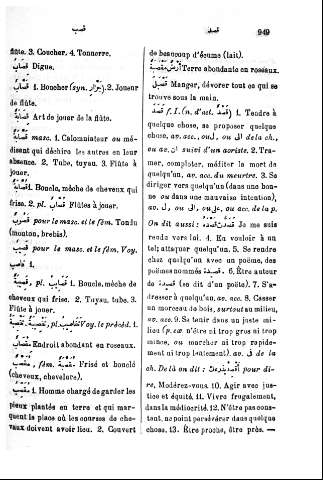 قصب
قصد
949
flûte. 3. Coucher. 4. Tonnerre.
قصاب Digue.
قصاب 1. Boucher (syn. جزار). 2. Joueur
de flûte.
قصابة Art de jouer de la flûte.
قصابة masc. 1. Calomniateur ou mé-
disant qui déchire les autres en leur
absence. 2. Tube, tuyau. 3. Flûte à
jouer.
1. Boucle, mèche de cheveux qui
frise. 2. pl. قصاب Flûtes à jouer.
pour le masc. et le fém. Tondu
(mouton, brebis).
pour le masc. et le fém. Voy.
1.
pl. 1. Boucle, mèche de
cheveux qui frise. 2. Tuyau, tube. 3.
Flûte à jouer.
pl. Voy. le précéd. 1.
Endroit abondant en roseaux.
fém. Frisé et bouclé
(cheveux, chevelure).
1. Homme chargé de garder les
pieux plantés en terre et qui mar-
quent la place où les courses de che-
vaux doivent avoir lieu. 2. Couvert
de beaucoup d'écume (lait).
أرض مقصبة Terre abondante en roseaux.
Manger, dévorer tout ce qui se
trouve sous la main.
قصد f. I. (n. d'act. قصد) 1. Tendre à
quelque chose, se proposer quelque
chose, av. acc., ou ل, ou الى de la ch.,
ou av. ان suivi d'un aoriste. 2. Tra-
mer, comploter, méditer la mort de
quelqu'un, av. acc. du meurtre. 3. Se
diriger vers quelqu'un (dans une bon-
ne ou dans une mauvaise intention),
av. ل, ou الى, ou على, ou acc. de la p.
On dit aussi : قصدت قصده Je me suis
rendu vers lui. 4. En vouloir à un
tel, attaquer quelqu'un. 5. Se rendre
chez quelqu'un avec un poëme, des
poëmes nommés قصيدة. 6. Être auteur
de قصيدة (se dit d'un poëte). 7. S'a-
dresser à quelqu'un, av. acc. 8. Casser
un morceau de bois, surtout au milieu,
av. acc. 9. Se tenir dans un juste mi-
lieu (p. ex. n'être ni trop gros ni trop
mince, ou marcher ni trop rapide-
ment ni trop lentement), av. في de la
ch. De là on dit : pour di-
re, Modérez-vous. 10. Agir avec jus-
tice et équité. 11. Vivre frugalement,
dans la médiocrité. 12. N'être pas cons-
tant, ne point persévérer dans quelque
chose. 13. Être proche, être près. —